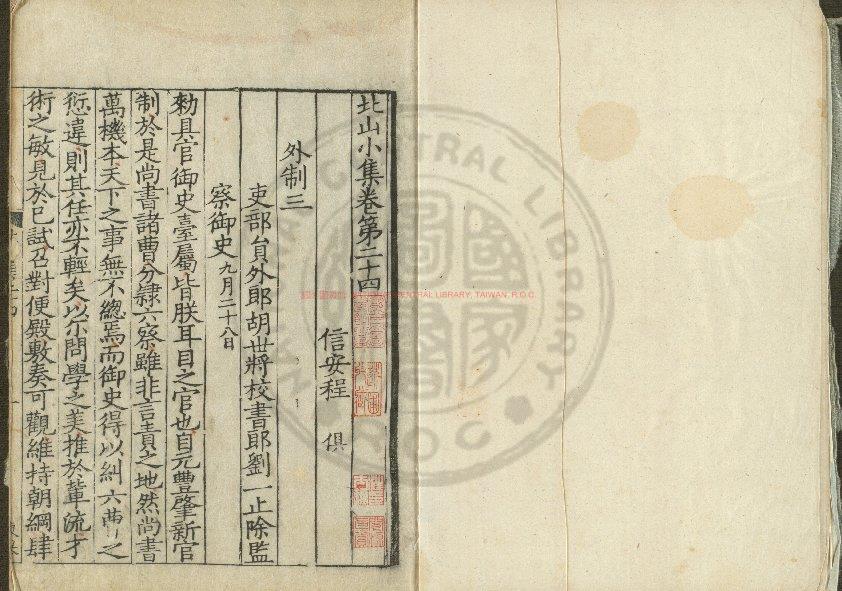 北山小集卷第二十四
信安程 俱
外制三
吏部貟外郎胡世將校書郎劉一止除監
察御史九月二十八日
勑具官御史臺屬皆朕耳目之官也自元豐肇新官
制於是尚書諸曹分隷六察雖非言責之地然尚書
萬機本天下之事無不總焉而御史得以糾六曹之
愆違則其任亦不輕矣以尔問學之美推於輩流才
術之敏見於已試召對便殿敷奏可觀維持朝綱肆
NATIONAL CENTRAL LIBRARY
R.O.C.
CENTRAL LIBRARY, TAIWAN, R.O.C.